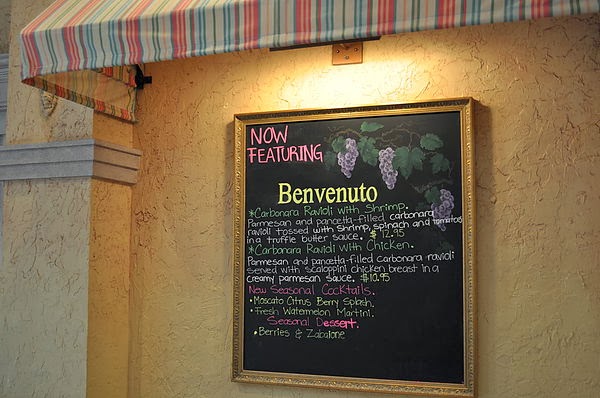 NOW
FEATURING
Benvenuto
*Carbonara Ravioli with Shrimp.
Parmesan and pancetta-filled carbonara
ravioli tossed with shrimp, spinach and tomatoes
in a truffle butter sauce. $12.95
*Carbonara Ravioli with Chicken.
Parmesan and pancetta-filled carbonara ravioli
served with scaloppini chicken breast in a
creamy parmesan sauce. $10.95
New Seasonal Cocktails.
• Moscato Citrus Berry Splash.
• Fresh Watermelon Martini.
Seasonal Dessert.
• Berries & Zabaione